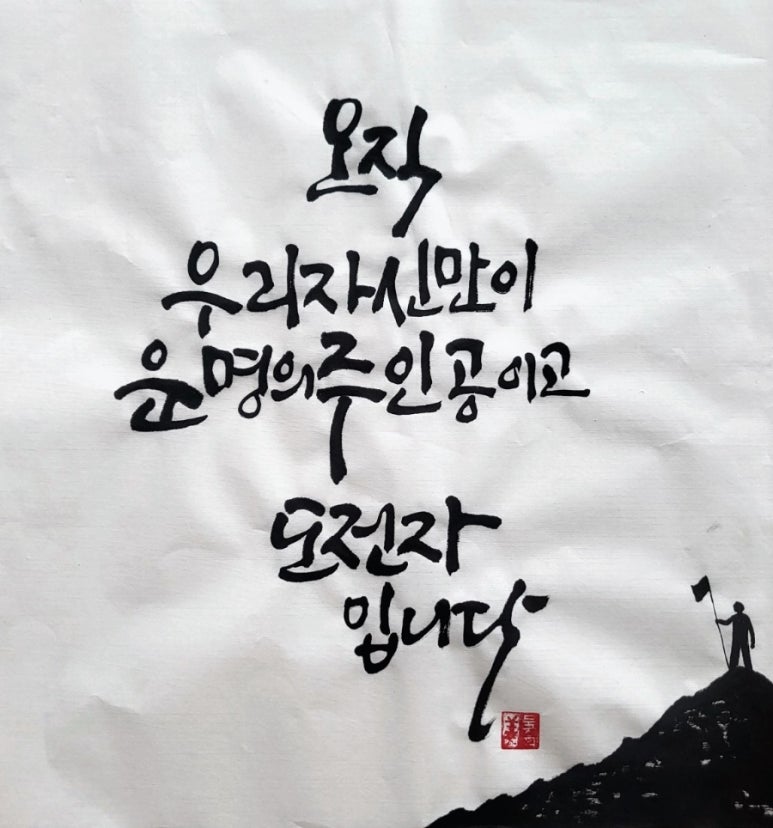 오직
우리자신만이
운명의주인공이고
도전자
입니다